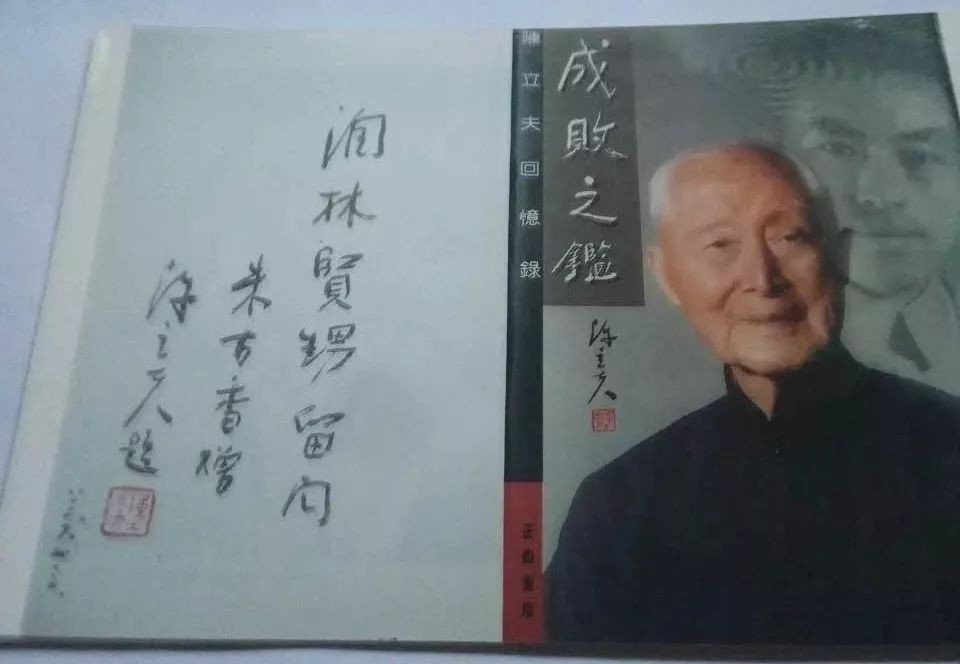 成敗之鑑
陳立夫
陳立夫回憶錄
正中書局
洵林賢甥留閱
朱古香贈
陳立夫題